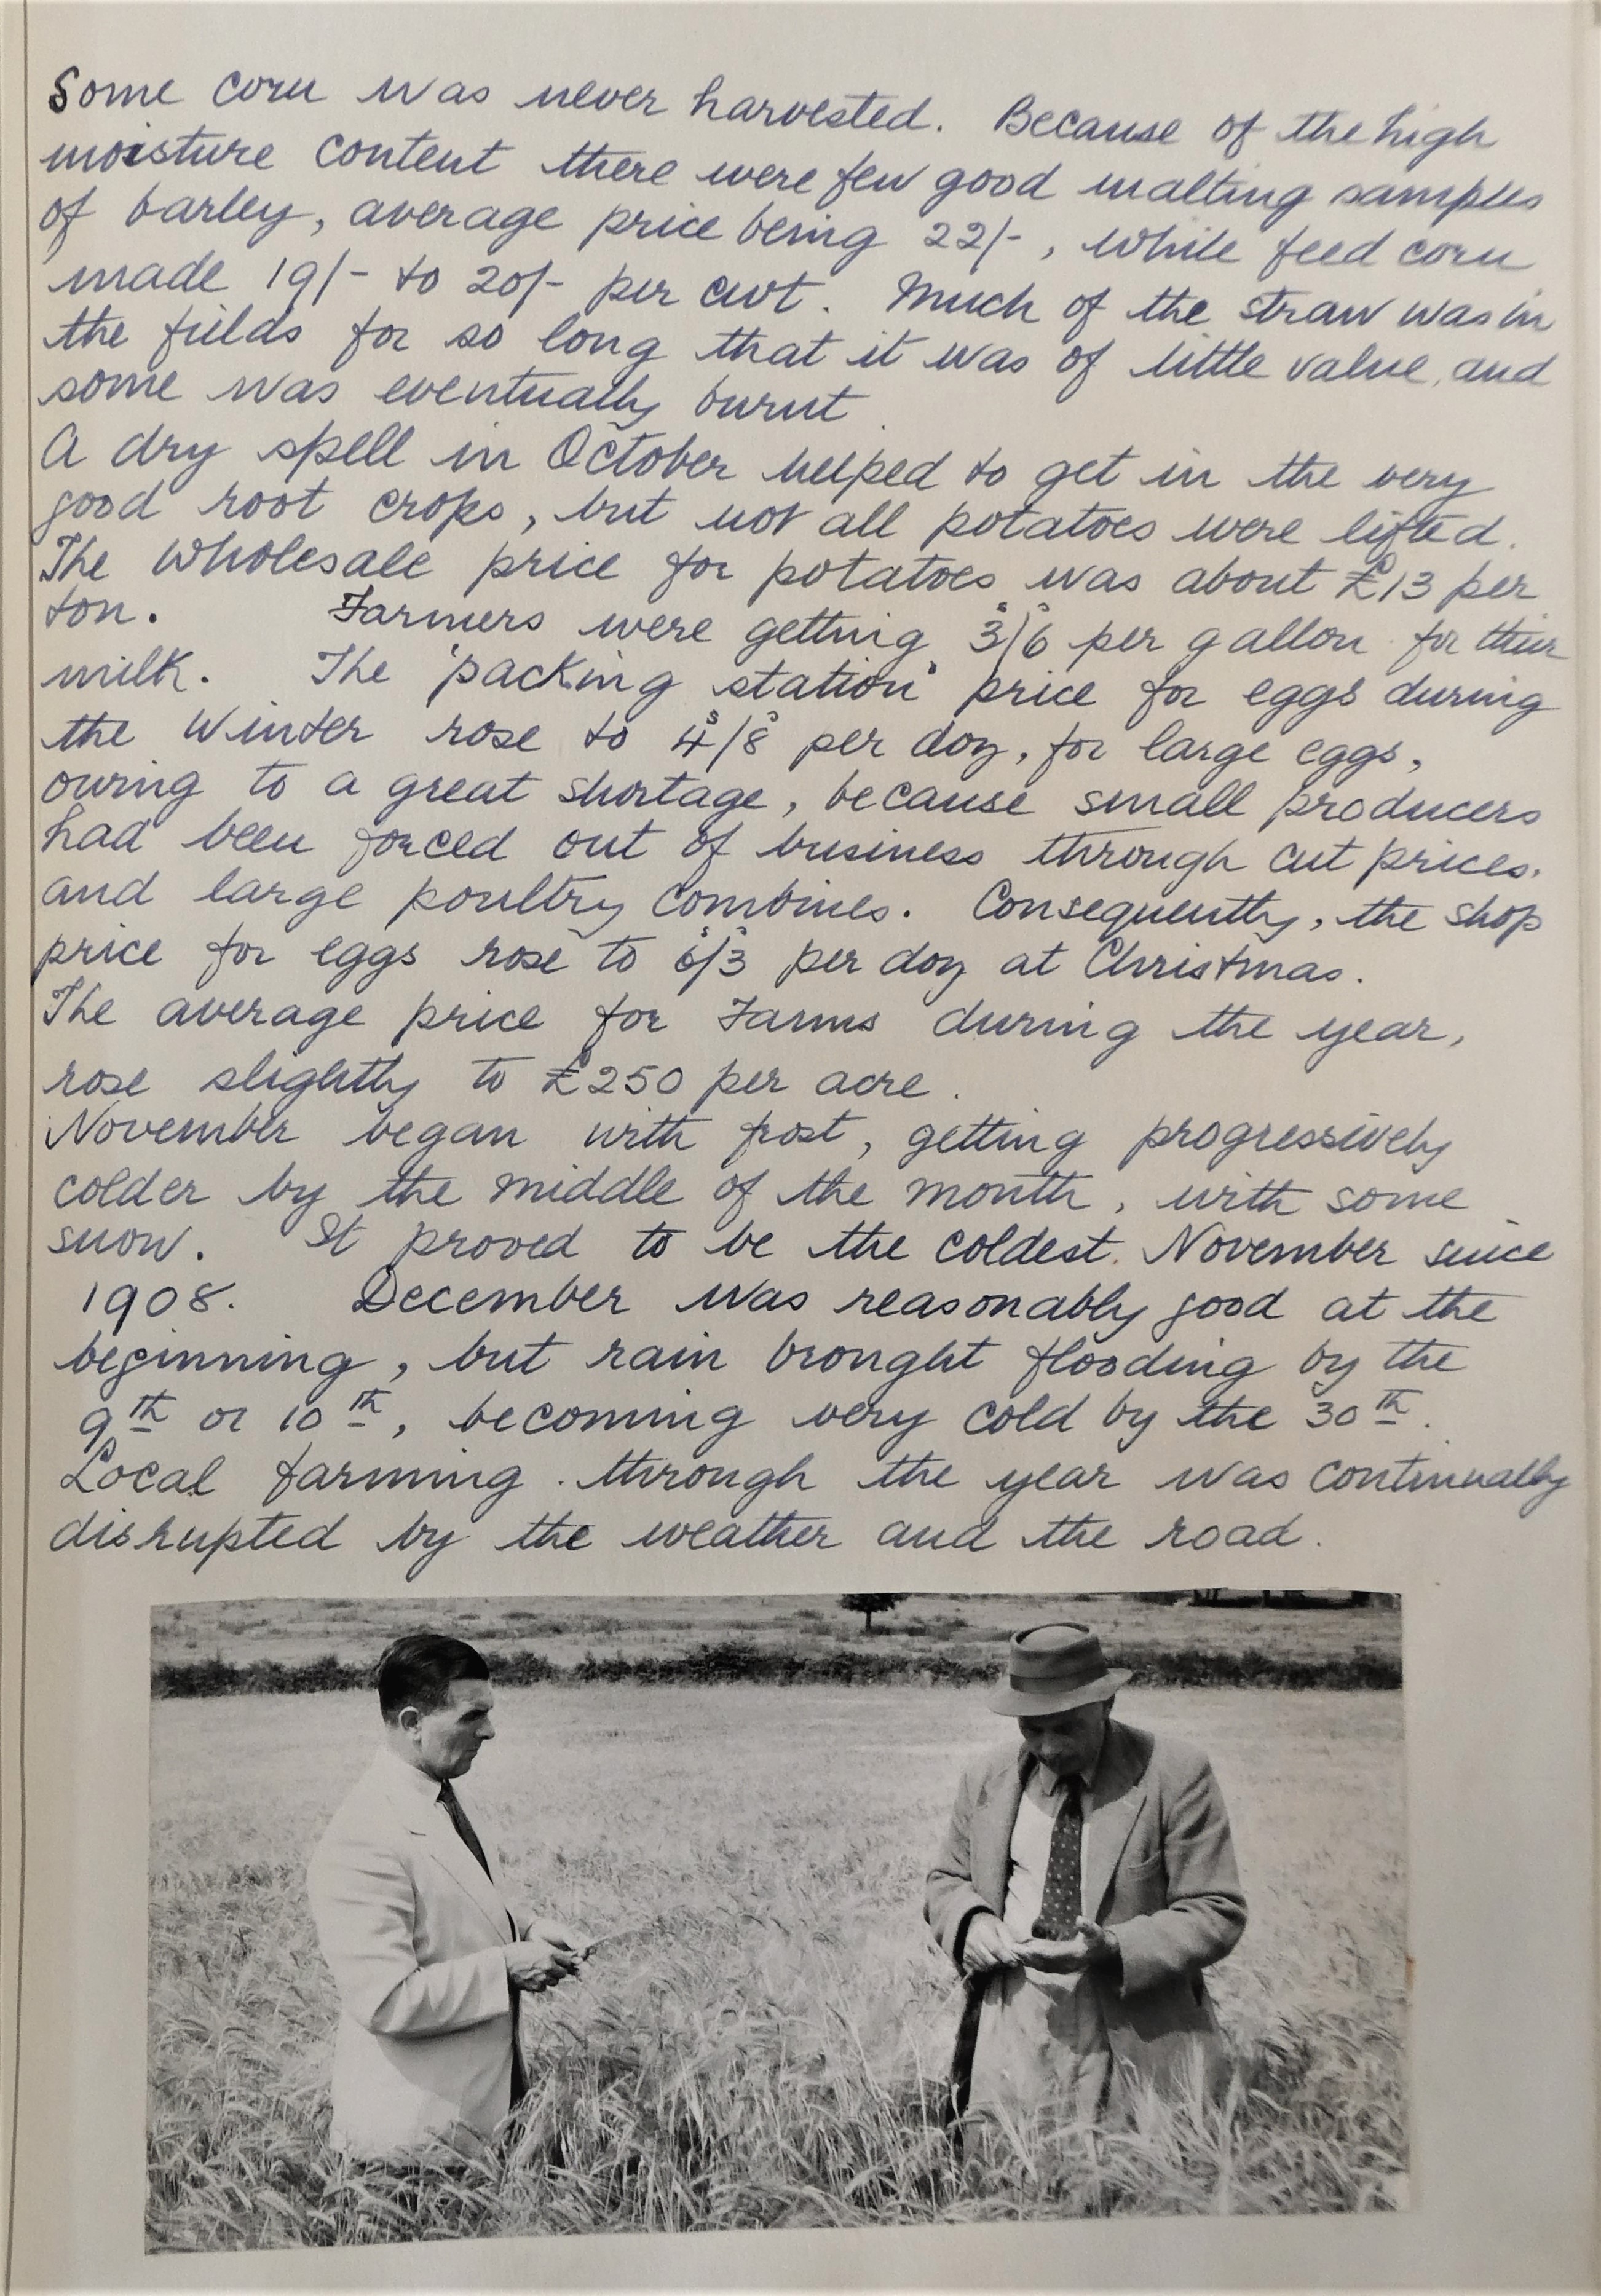 Some corn was never harvested. Because of the high
moisture content there were few good malting samples
of barley, average price being 22/-, while feed corn
made 19/- to 20/- per cwt. Much of the straw was in
the fields for so long that it was of little value, and
some was eventually burnt.
A dry spell in October helped to get in the very
good root crops, but not all potatoes were lifted.
The wholesale price for potatoes was about £13 per
ton. Farmers were getting 3/6 per gallon for their
milk. The 'packing station' price for eggs during
the Winter rose to 4/8 per doz, for large eggs,
owing to a great shortage, because small producers
had been forced out of business through cut prices.
and large poultry combines. Consequently, the shop
price for eggs rose to 6/3 per doz at Christmas.
The average price for Farms during the year,
rose slightly to £250 per acre.
November began with frost, getting progressively
colder by the middle of the month, with some
snow. It proved to be the coldest November since
1908. December was reasonably good at the
beginning, but rain brought flooding by the
9th or 10th, becoming very cold by the 30th.
Local farming through the year was continually
disrupted by the weather and the road.